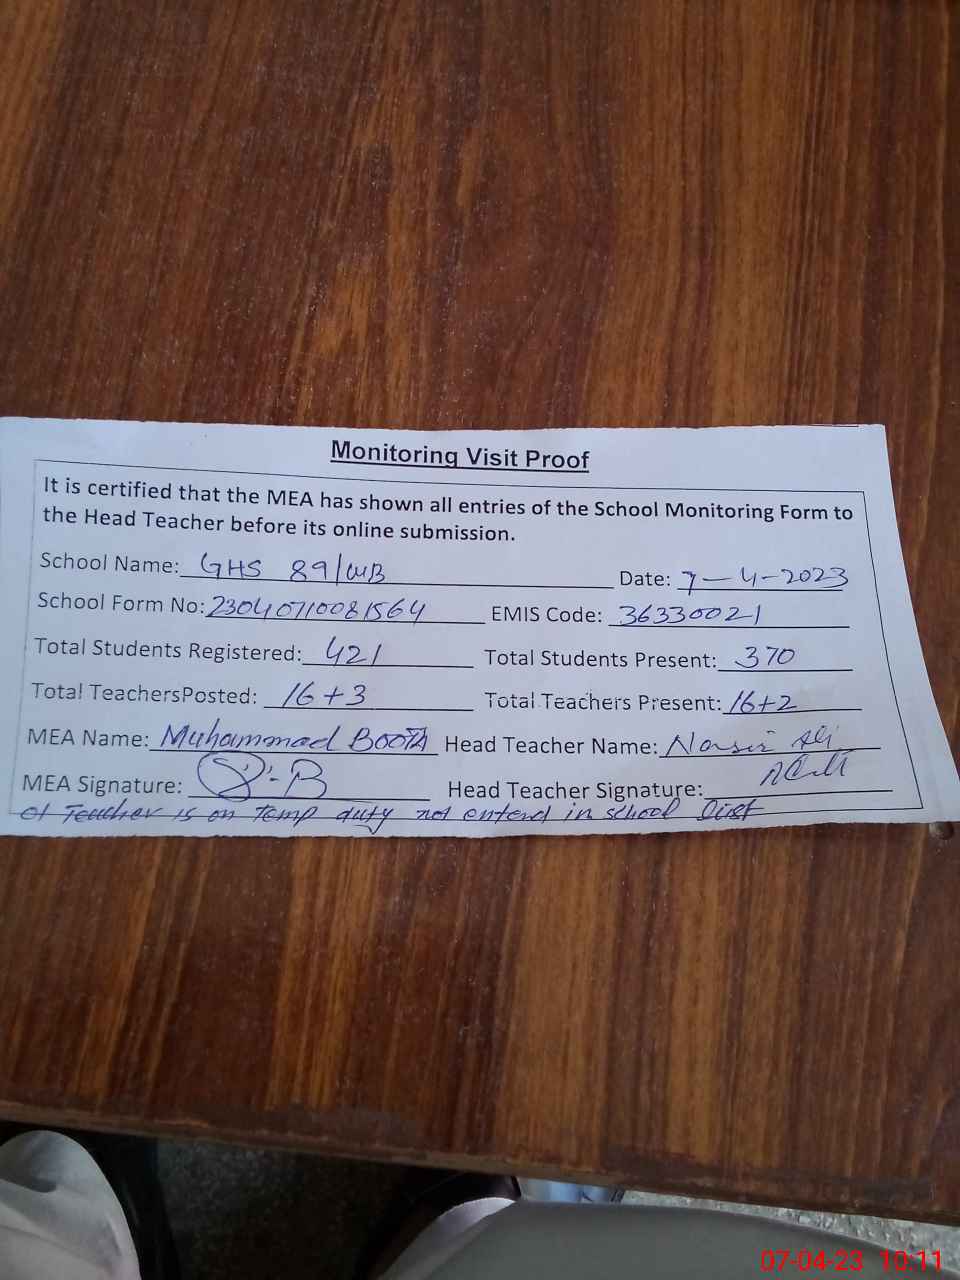 Monitoring Visit Proof
It is certified that the MEA has shown all entries of the School Monitoring Form to
the Head Teacher before its online submission.
School Name: GHS 89/WB Date: 7-4-2023
School Form No: 23040710081564 EMIS Code: 36330021
Total Students Registered: 421 Total Students Present: 370
Total TeachersPosted: 16+3 Total Teachers Present: 16+2
MEA Name: Muhammad BOOTA Head Teacher Name: Nasir Ali
MEA Signature: Head Teacher Signature:
Teacher is on Temp duty not enterd in school list
07-04-23 10:11